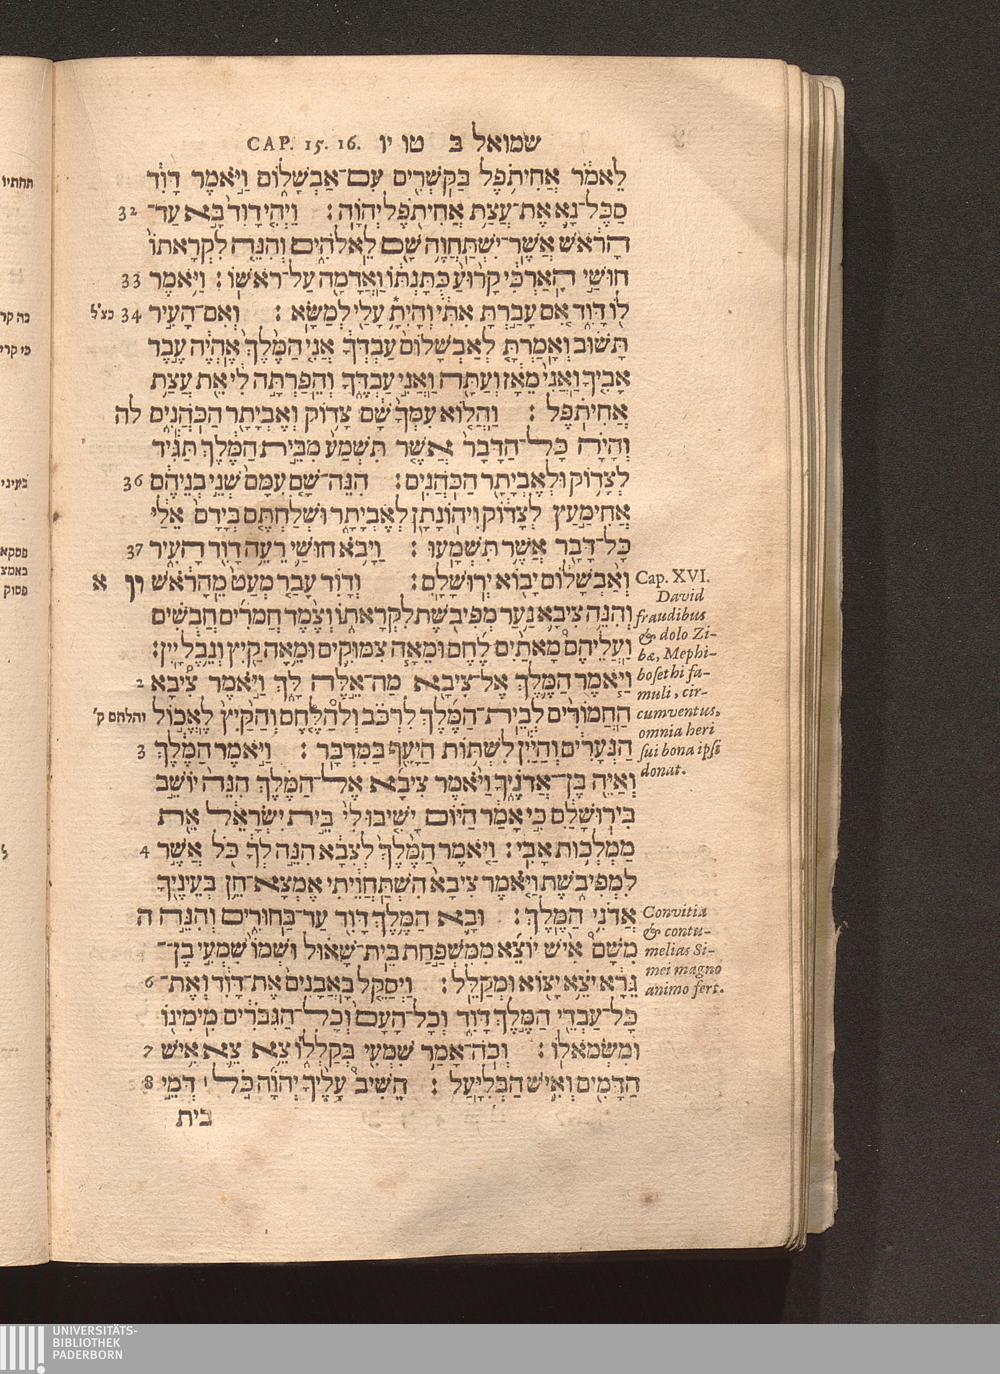 שמואל ב טו יו CAP. 15. 16.
לֵאמֹר אֲחִיתֹפֶל בַּקֹּשְׁרִים עִם־אַבְשָׁלוֹם וַיֹּאמֶר דָּוִד
סַכֶּל־נָא אֶת־עֲצַת אֲחִיתֹפֶל יְהוָה׃ וַיְהִי דָוִד בָּא עַד־ 32
הָרֹאשׁ אֲשֶׁר־יִשְׁתַּחֲוֶה שָׁם לֵאלֹהִים וְהִנֵּה לִקְרָאתוֹ
חוּשַׁי הָאַרְכִּי קָרוּעַ כֻּתָּנְתּוֹ וַאֲדָמָה עַל־רֹאשׁוֹ׃ וַיֹּאמֶר 33
לוֹ דָּוִד אִם עָבַרְתָּ אִתִּי וְהָיִתָ עָלַי לְמַשָּׂא׃ וְאִם־הָעִיר 34
תָּשׁוּב וְאָמַרְתָּ לְאַבְשָׁלוֹם עַבְדְּךָ אֲנִי הַמֶּלֶךְ אֶהְיֶה עֶבֶד
אָבִיךָ וַאֲנִי מֵאָז וְעַתָּה וַאֲנִי עַבְדֶּךָ וְהֵפַרְתָּה לִי אֵת עֲצַת
אֲחִיתֹפֶל׃ וַהֲלוֹא עִמְּךָ שָׁם צָדוֹק וְאֶבְיָתָר הַכֹּהֲנִים לה
וְהָיָה כָּל־הַדָּבָר אֲשֶׁר תִּשְׁמַע מִבֵּית הַמֶּלֶךְ תַּגִּיד
לְצָדוֹק וּלְאֶבְיָתָר הַכֹּהֲנִים׃ הִנֵּה־שָׁם עִמָּם שְׁנֵי בְנֵיהֶם 36
אֲחִימַעַץ לְצָדוֹק וִיהוֹנָתָן לְאֶבְיָתָר וּשְׁלַחְתֶּם בְּיָדָם אֵלַי
כָּל־דָּבָר אֲשֶׁר תִּשְׁמָעוּ׃ וַיָּבֹא חוּשַׁי רֵעֶה דָוִד הָעִיר 37
וְאַבְשָׁלוֹם יָבוֹא יְרוּשָׁלִָם׃ וְדָוִד עָבַר מְעַט מֵהָרֹאשׁ א
וְהִנֵּה צִיבָא נַעַר מְפִיבֹשֶׁת לִקְרָאתוֹ וְצֶמֶד חֲמֹרִים חֲבֻשִׁים
וַעֲלֵיהֶם מָאתַיִם לֶחֶם וּמֵאָה צִמּוּקִים וּמֵאָה קַיִץ וְנֵבֶל יָיִן׃
וַיֹּאמֶר הַמֶּלֶךְ אֶל־צִיבָא מָה־אֵלֶּה לָּךְ וַיֹּאמֶר צִיבָא 2
הַחֲמוֹרִים לְבֵית־הַמֶּלֶךְ לִרְכֹּב וְלְהַלֶּחֶם וְהַקַּיִץ לֶאֱכוֹל והלחם ק׳
הַנְּעָרִים וְהַיַּיִן לִשְׁתּוֹת הַיָּעֵף בַּמִּדְבָּר׃ וַיֹּאמֶר הַמֶּלֶךְ 3
וְאַיֵּה בֶּן־אֲדֹנֶיךָ וַיֹּאמֶר צִיבָא אֶל־הַמֶּלֶךְ הִנֵּה יוֹשֵׁב
בִּירוּשָׁלִַם כִּי אָמַר הַיּוֹם יָשִׁיבוּ לִי בֵּית יִשְׂרָאֵל אֵת
מַמְלְכוּת אָבִי׃ וַיֹּאמֶר הַמֶּלֶךְ לְצִבָא הִנֵּה לְךָ כֹּל אֲשֶׁר 4
לִמְפִיבֹשֶׁת וַיֹּאמֶר צִיבָא הִשְׁתַּחֲוֵיתִי אֶמְצָא־חֵן בְּעֵינֶיךָ
אֲדֹנִי הַמֶּלֶךְ׃ וּבָא הַמֶּלֶךְ דָּוִד עַד־בַּחוּרִים וְהִנֵּה ה
מִשָּׁם אִישׁ יוֹצֵא מִמִּשְׁפַּחַת בֵּית־שָׁאוּל וּשְׁמוֹ שִׁמְעִי בֶן־
גֵּרָא יֹצֵא יָצוֹא וּמְקַלֵּל׃ וַיְסַקֵּל בָּאֲבָנִים אֶת־דָּוִד וְאֶת־ 6
כָּל־עַבְדֵי הַמֶּלֶךְ דָּוִד וְכָל־הָעָם וְכָל־הַגִּבֹּרִים מִימִינוֹ
וּמִשְּׂמֹאלוֹ׃ וְכֹה־אָמַר שִׁמְעִי בְּקַלְלוֹ צֵא צֵא אִישׁ 7
הַדָּמִים וְאִישׁ הַבְּלִיָּעַל׃ הֵשִׁיב עָלֶיךָ יְהוָה כֹּל ׀ דְּמֵי 8
בית
Cap. XVI.
David
fraudibus
& dolo Zi-
bæ, Mephi-
bosethi fa-
muli, cir-
cumventus,
omnia heri
sui bona ipsi
donat.
Convitia
& contu-
melias Si-
mei magno
animo fert.
UNIVERSITÄTS-
BIBLIOTHEK
PADERBORN